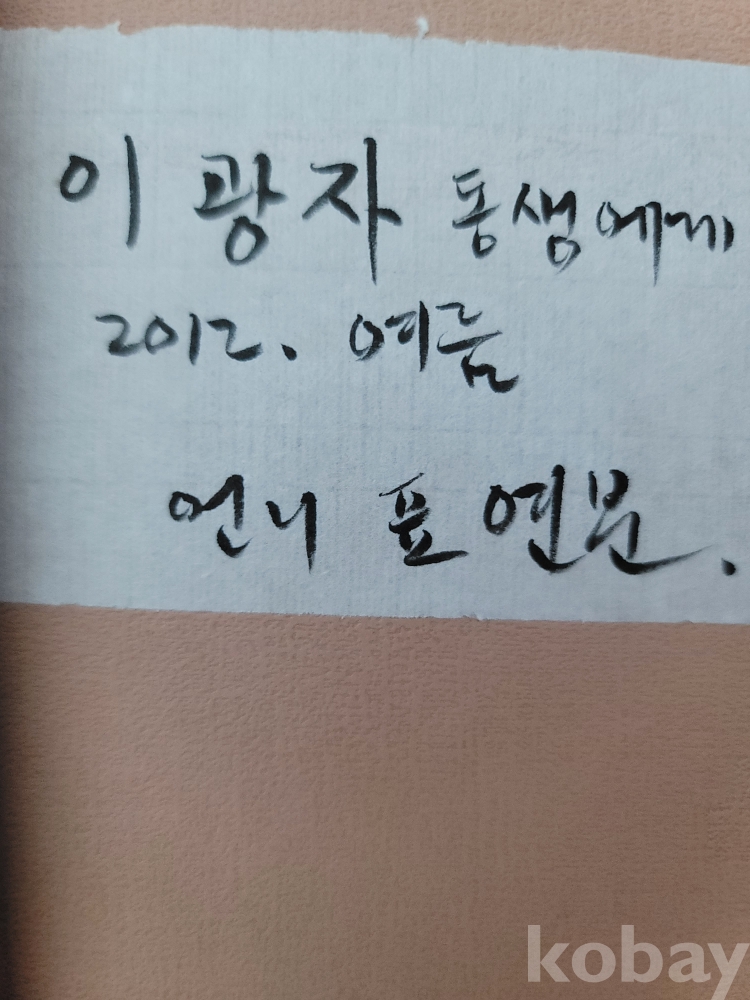 이광자 동생에게
2012. 여름
언니 표연분.
kobay